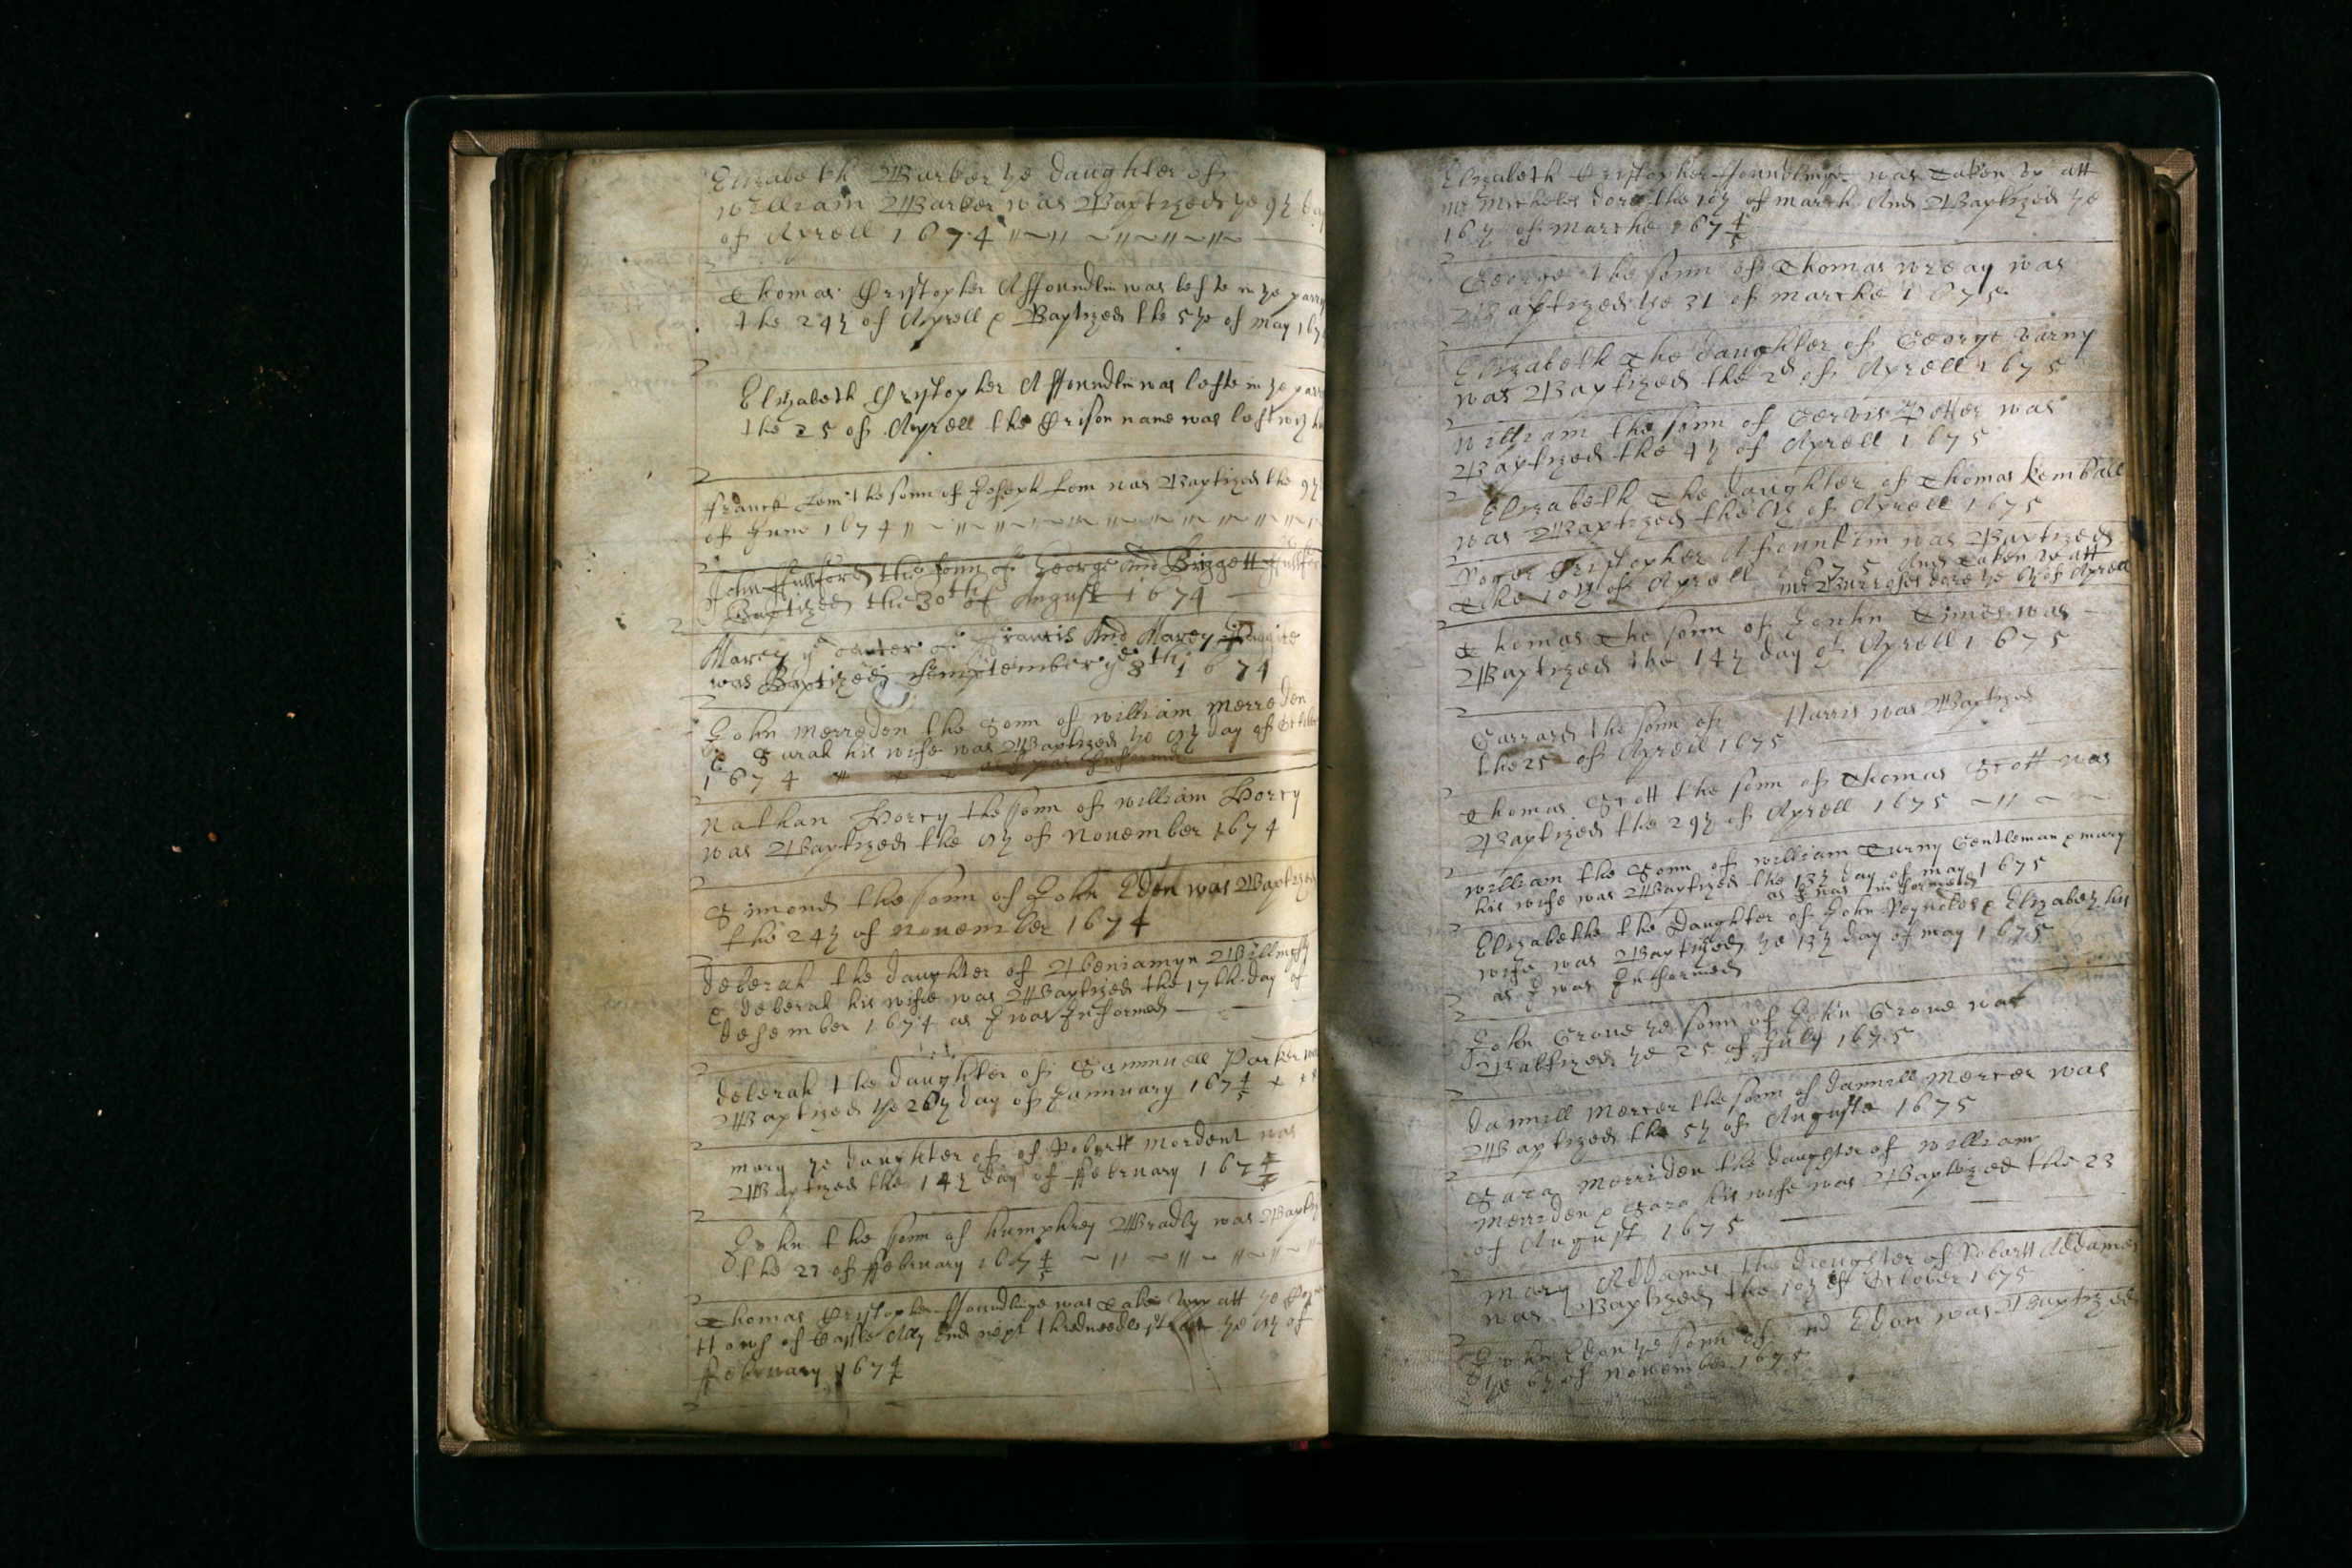 Elizabeth Barber ye daughter of
william Barber was Baptized ye 9th day
of Aprell 1674
Thomas Cristopher A ffoundlin was lefte in ye
the 24th of Aprell & Baptized the 5th of may
Elizabeth Cristopher A ffoundlin was lefte in ye
the 25 of Aprell the Crison name was left
Franck Lem the sonn of Joseph Lem was Baptized the 9th
of June 1674
John ffullford the sonn of George And Brizgett
Baptized the 30th of August 1674
Marey ye dauter of Francis And Marey
was Baptized Semptember ye 8th 1674
John merreden the Sonn of william merreden
& Sarah his wife was Baptized ye day of
1674
Nathan Horcy the sonn of william Horcy
was Baptized the of November 1674
Simond the sonn of John Eden was Baptized
the 24th of November 1674
deberah the daughter of Beniamyn
& deberah his wife was Baptized the 17th day of
desember 1674 as I was Informed
deberah the daughter of Sammuell Parker
Baptized ye 26th day of Jannuary 1674/5
mary ye daughter of of Robertt mordent was
Baptized the 14th day of ffebruary 1674/5
John the sonn of humphrey Bradly was
the 27 of ffebruary 1674/5
Thomas Cristopher ffoundlinge was taken upp att ye
of And next thredneedle ye of
ffebruary 1674
Elizabeth Cristopher ffoundlinge was taken up att
mr Micheles dore the 10th of march And Baptized ye
16th of marche 1674/5
George the sonn of Thomas wreay was
Baptized ye 31 of marche 1675
Elizabeth the daughter of George varny
was Baptized the 2d of Aprell 1675
william the sonn of Gervis Potter was
Baptized the 4th of Aprell 1675
Elizabeth the daughter of Thomas Kemball
was Baptized the of Aprell 1675
Roger Cristopher A founlin was Baptized
the 10th of Aprell 1675 And taken up att
mr Burroses dore ye 6th of Aprell
Thomas the sonn of Times was
Baptized the 14th day of Aprell 1675
Garrard the sonn of Harris was Baptized
the 25 of Aprell 1675
Thomas Scott the sonn of Thomas Scott was
Baptized the 29th of Aprell 1675
william the Sonn of william Turny Gentleman & mary
his wife was Baptized the 13th day of may 1675
as I was Informed
Elizabethe the Daughter of John Reynoldes & Elizabeth his
wife was Baptized ye 13th day of may 1675
as I was Informed
John Groue ye sonn of John Groue was
Baltized ye 25 of July 1675
dannill mercer the sonn of dannill mercer was
Baptized the 5th of Auguste 1675
Sara merriden the daughter of william
merriden & Sara his wife was Baptized the 23
of August 1675
mary Addames the daughter of Robertt Addames
was Baptized the 10th of October 1675
John Edon ye sonn of Edon was Baptized
ye 6th of November 1675